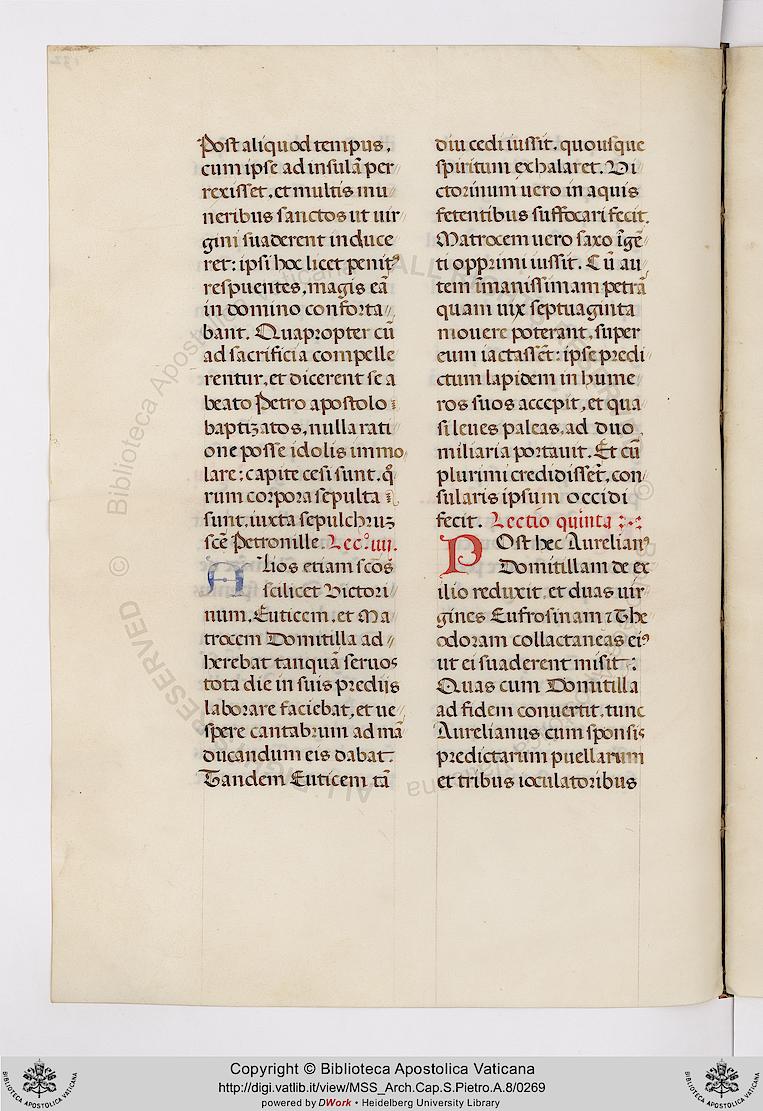 Post aliquod tempus,
cum ipse ad insulā per〃
rexisset, et multis mu〃
neribus sanctos ut uir〃
gini suaderent induce
ret: ipsi hoc licet penitꝰ
respuentes, magis eā
in domino conforta〃
bant. Quapropter cū
ad sacrificia compelle
rentur, et dicerent se a
beato Petro apostolo
baptizatos, nulla rati
one posse idolis immo〃
lare: capite cesi sunt. q̊
rum corpora sepulta
sunt, iuxta sepulchruꝫ
scē Petronille. Lecº. iiii.
Alios etiam scōs
scilicet Victori
num, Euticem, et Ma
trocem Domitilla ad〃
herebat tanquā seruos
tota die in suis predijs
laborare faciebat, et ue〃
spere cantabrum ad mā
ducandum eis dabat.
Tandem Euticem tā
diu cedi iussit, quousque
spiritum exhalaret. Vi
ctorinum uero in aquis
fetentibus suffocari fecit.
Matrocem uero saxo īgē〃
ti opprimi iussit. Cū au〃
tem īmanissimam petrā
quam uix septuaginta
mouere poterant, super
eum iactassēt: ipse predi〃
ctum lapidem in hume
ros suos accepit, et qua〃
si leues paleas, ad duo
miliaria portauit. Et cū
plurimi credidissēt, con〃
sularis ipsum occidi
fecit. Lectio quinta
Post hec Aurelianꝰ
Domitillam de ex
ilio reduxit, et duas uir〃
gines Eufrosinam ⁊ The
odoram collactaneas eiꝰ
ut ei suaderent misit:
Quas cum Domitilla
ad fidem conuertit, tunc
Aurelianus cum sponsis
predictarum puellarum
et tribus ioculatoribus
Copyright © Biblioteca Apostolica Vaticana
http://digi.vatlib.it/view/MSS_Arch.Cap.S.Pietro.A.8/0269
powered by DWork • Heidelberg University Library